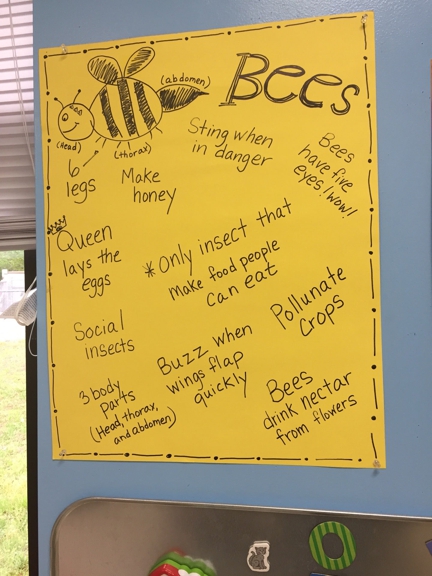 BEES
(abdomen)
(Head)
(thorax)
6
legs
Make
honey
Sting when
in danger
Bees
have five
eyes! Wow!
Queen
lays the
eggs
*Only insect that
make food people
can eat
Social
insects
Buzz when
wings flap
quickly
Pollunate
Crops
3 body
parts
(Head, thorax,
and abdomen)
Bees
drink nectar
from flowers